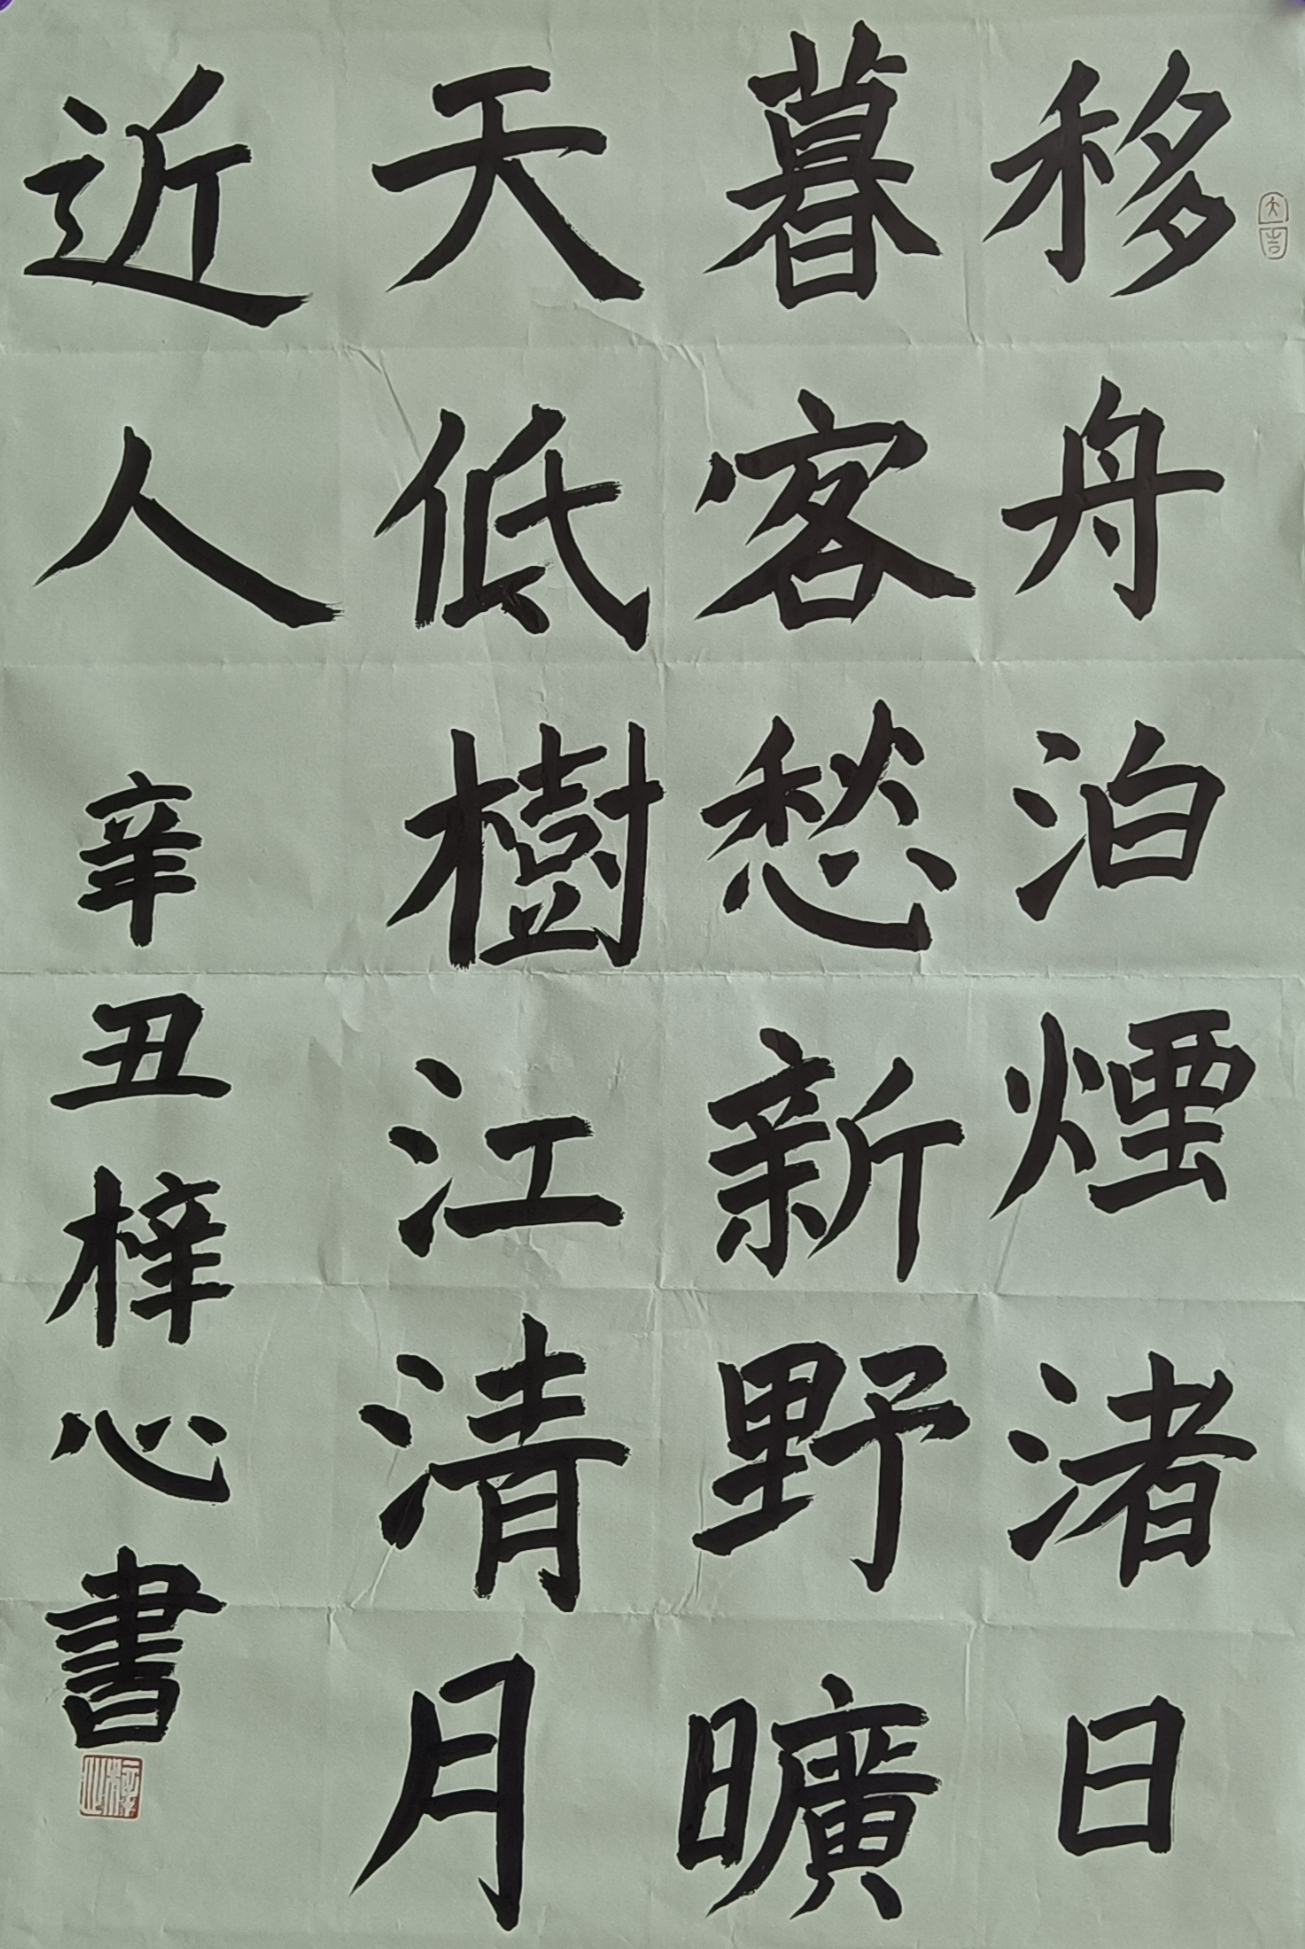 移舟泊煙渚日
暮客愁新野曠
天低樹江清月
近人
辛丑梓心書
大吉